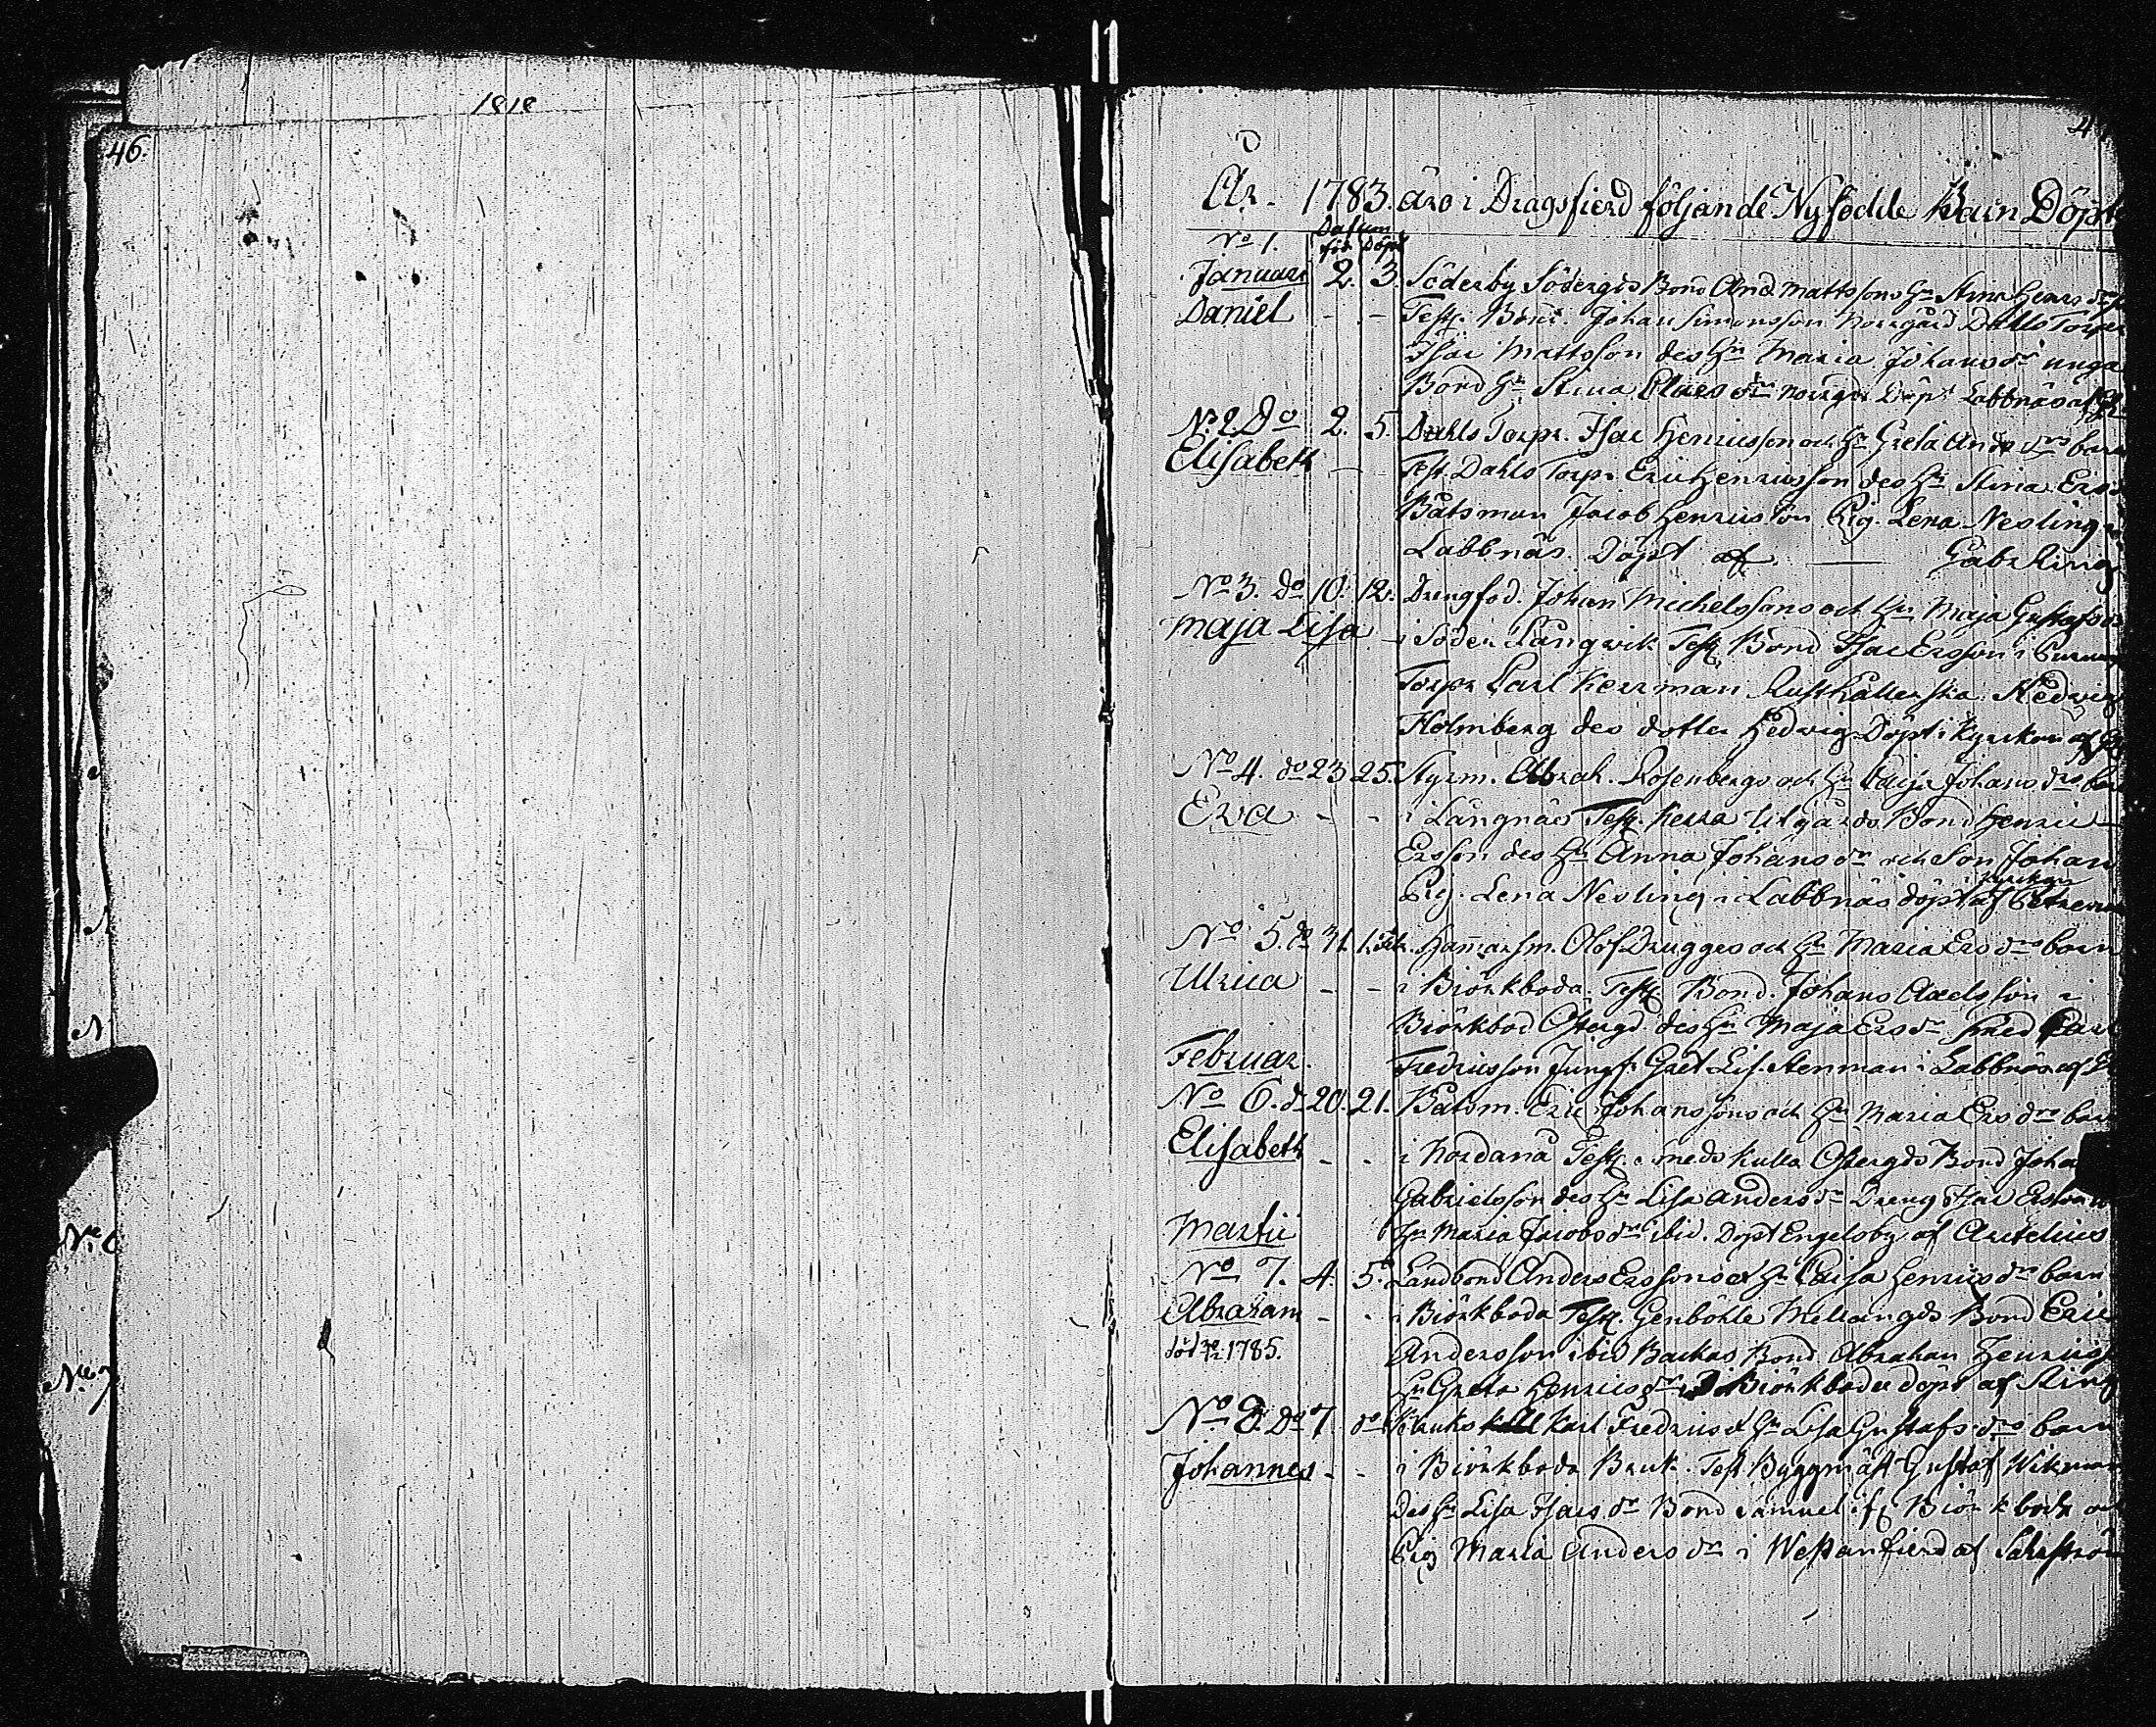 1818
46.
År. 1783. äro i Dragsfierd följande Nyfödde Barn Döpt
Datum
No 1. föd Döpt
Januari 2. 3. Söderby Södergds Bond And. Mattssons Hu Stina Henrs dr
Daniel - - Test. Bond. Johan Simonsson Norrgård Dahls Torpr
Isac Mattsson des Hu Maria Johans dr unga
Bond Hu Stina Claes dr Norrgd. Döpt Labbnäs af
No 2 Do 2. 5. Dahls Torpr. Isac Henricsson och Hu Greta And drs barn
Elisabeth - - Test. Dahls Torpr Eric Henricsson des Hu Stina Ers
Båtsman Jacob Henricsson Pig. Lena Nesling i
Labbnäs. Döpt af — Gabr Ring
No 3. do 10. 12. Drengfod. Johan Michelssons och Hu Maja Gustafs
Maja Lisa - i Söder Långvik Test. Bond Isac Ersson i
Torpr Carl Kerrman Rusthållerska Hedvig
Holmberg des dotter Hedvig Döpt i Kyrkan af
No 4. do 23 25. Styrm. Abrah. Rosenbergs och Hu Caisa Johans drs bar
Eva - - i Långnäs Test. Kerra Utgårds Bond Henric
Ersson des Hu Anna Johans dr och Son Johan
i kyrkan
Pig. Lena Nesling i Labbnäs döpt af
No 5. do 31. 1. Feb. Hamarsm. Olof Drugges och Hu Maria Ers drs barn
Ulrica - - i Biörkboda. Test. Bond. Johans Axelsson i
Biörkbod Östergd. des Hu Maja Ers dr Smed Carl
Februar. Fredricsson Jungf. Gret. Lis. Stenman i Labbnäs af
No 6. d 20. 21. Båtsm. Eric Johanssons och Hu Maria Ers drs bar
Elisabeth - - i Nordanå Test. Smedskulla Östergds Bond Joha
Gabrielsson des Hu Lisa Anders dr Dreng Isac Ersson
Martii Hu Maria Jacobs dr ibid. Döpt Engelsby af Aretelius
No 7. 4. 5. Landbond Anders Erssons et Hu Caisa Henrics dr barn
Abraham - - i Biörkboda Test. Genböhle Mellangds Bond Eric
död 1785. Andersson ibid Backas Bond Abraham Henrics
Hu Greta Henrics dr i Biörkboda döpt af Ring
No 8. Do 7. do Bruks Karl Fredrics et Hu Lisa Gustafs drs barn
Johannes - - i Biörkboda Bruk. Test Byggmäst Gustaf Wikman
Des Hu Lisa Isacs dr Bond Samuel if Biörkboda
Pig Maria Anders dr i Westanfierd af Sahlström